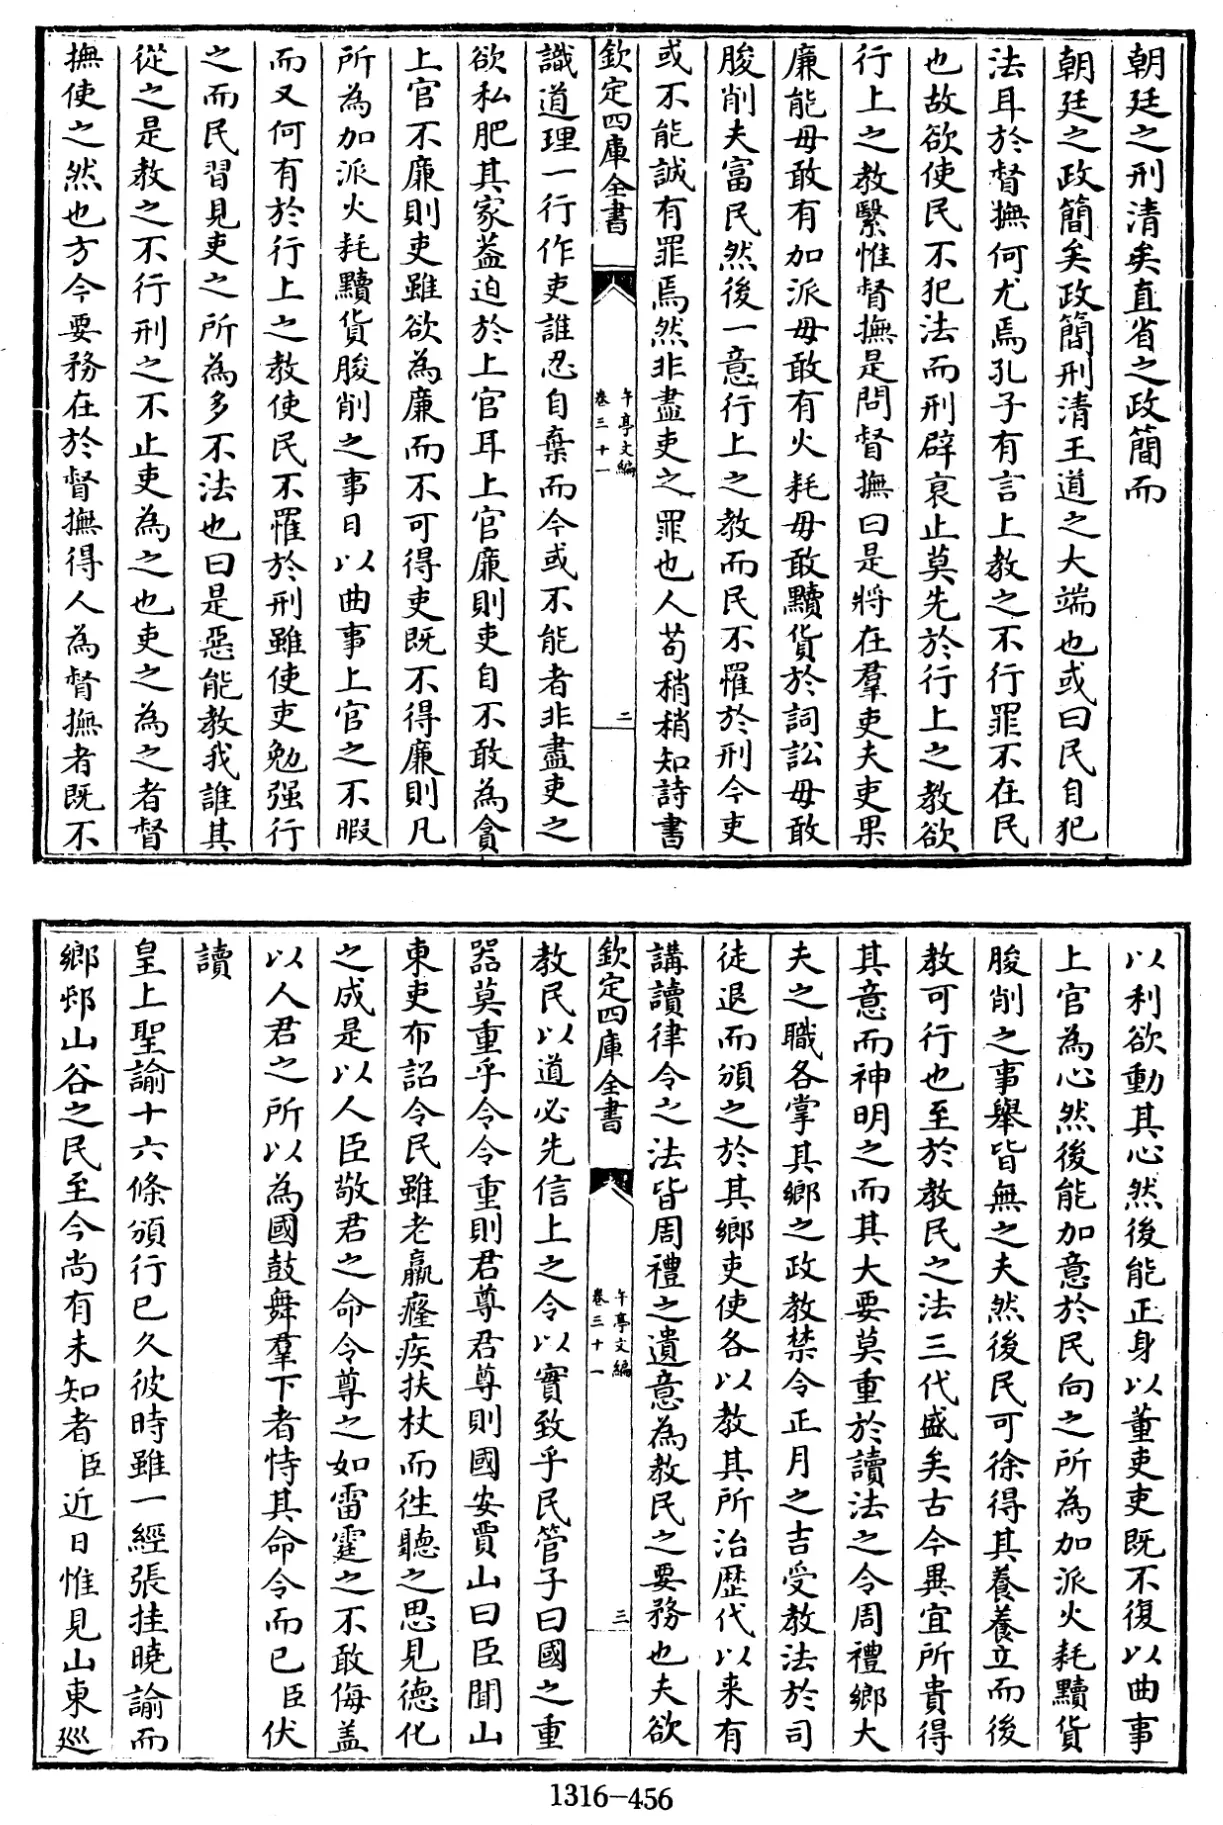 朝廷之刑清矣直省之政簡而
朝廷之政簡矣政簡刑清王道之大端也或曰民自犯
法耳於督撫何尤焉孔子有言上教之不行罪不在民
也故欲使民不犯法而刑辟衰止莫先於行上之教欲
行上之教繄惟督撫是問督撫曰是將在羣吏夫吏果
廉能毋敢有加派毋敢有火耗毋敢黷貨於詞訟毋敢
朘削夫富民然後一意行上之教而民不罹於刑今吏
或不能誠有罪焉然非盡吏之罪也人苟稍稍知詩書
欽定四庫全書
午亭文編
卷三十一
二
識道理一行作吏誰忍自棄而今或不能者非盡吏之
欲私肥其家葢迫於上官耳上官廉則吏自不敢為貪
上官不廉則吏雖欲為廉而不可得吏既不得廉則凡
所為加派火耗黷貨朘削之事日以曲事上官之不暇
而又何有於行上之教使民不罹於刑雖使吏勉强行
之而民習見吏之所為多不法也曰是惡能教我誰其
從之是教之不行刑之不止吏為之也吏之為之者督
撫使之然也方今要務在於督撫得人為督撫者既不
以利欲動其心然後能正身以董吏吏既不復以曲事
上官為心然後能加意於民向之所為加派火耗黷貨
朘削之事舉皆無之夫然後民可徐得其養養立而後
教可行也至於教民之法三代盛矣古今異宜所貴得
其意而神明之而其大要莫重於讀法之令周禮鄉大
夫之職各掌其鄉之政教禁令正月之吉受教法於司
徒退而頒之於其鄉吏使各以教其所治歴代以来有
講讀律令之法皆周禮之遺意為教民之要務也夫欲
欽定四庫全書
午亭文編
卷三十一
三
教民以道必先信上之令以實致乎民管子曰國之重
器莫重乎令令重則君尊君尊則國安賈山曰臣聞山
東吏布詔令民雖老羸癃疾扶杖而徃聽之思見德化
之成是以人臣敬君之命令尊之如雷霆之不敢侮盖
以人君之所以為國鼓舞羣下者恃其命令而已臣伏
讀
皇上聖諭十六條頒行已久彼時雖一經張挂曉諭而
鄉邨山谷之民至今尚有未知者臣近日惟見山東廵
1316-456